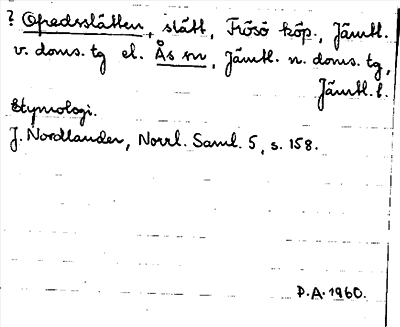 ? Opedsslåtten, slått, Frösö köp., Jämtl.
v. doms. tg el. Ås sn, Jämtl. n. doms. tg,
Jämtl. l.
Etymologi.
J. Nordlander, Norrl. Saml. 5, s. 158.
P.A. 1960.